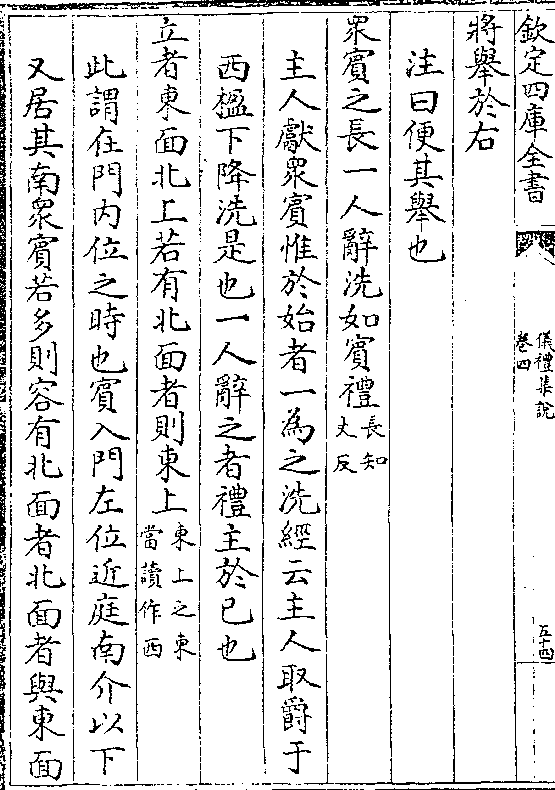 欽定四庫全書
儀禮集說
卷四
五十四
將舉於右
注曰便其舉也
眾賓之長一人辭洗如賓禮長知丈反
主人獻眾賓惟於始者一為之洗經云主人取爵于
西楹下降洗是也一人辭之者禮主於已也
立者東面北上若有北面者則東上東上之東當讀作西
此謂在門內位之時也賓入門左位近庭南介以下
又居其南眾賓若多則容有北面者北面者與東面